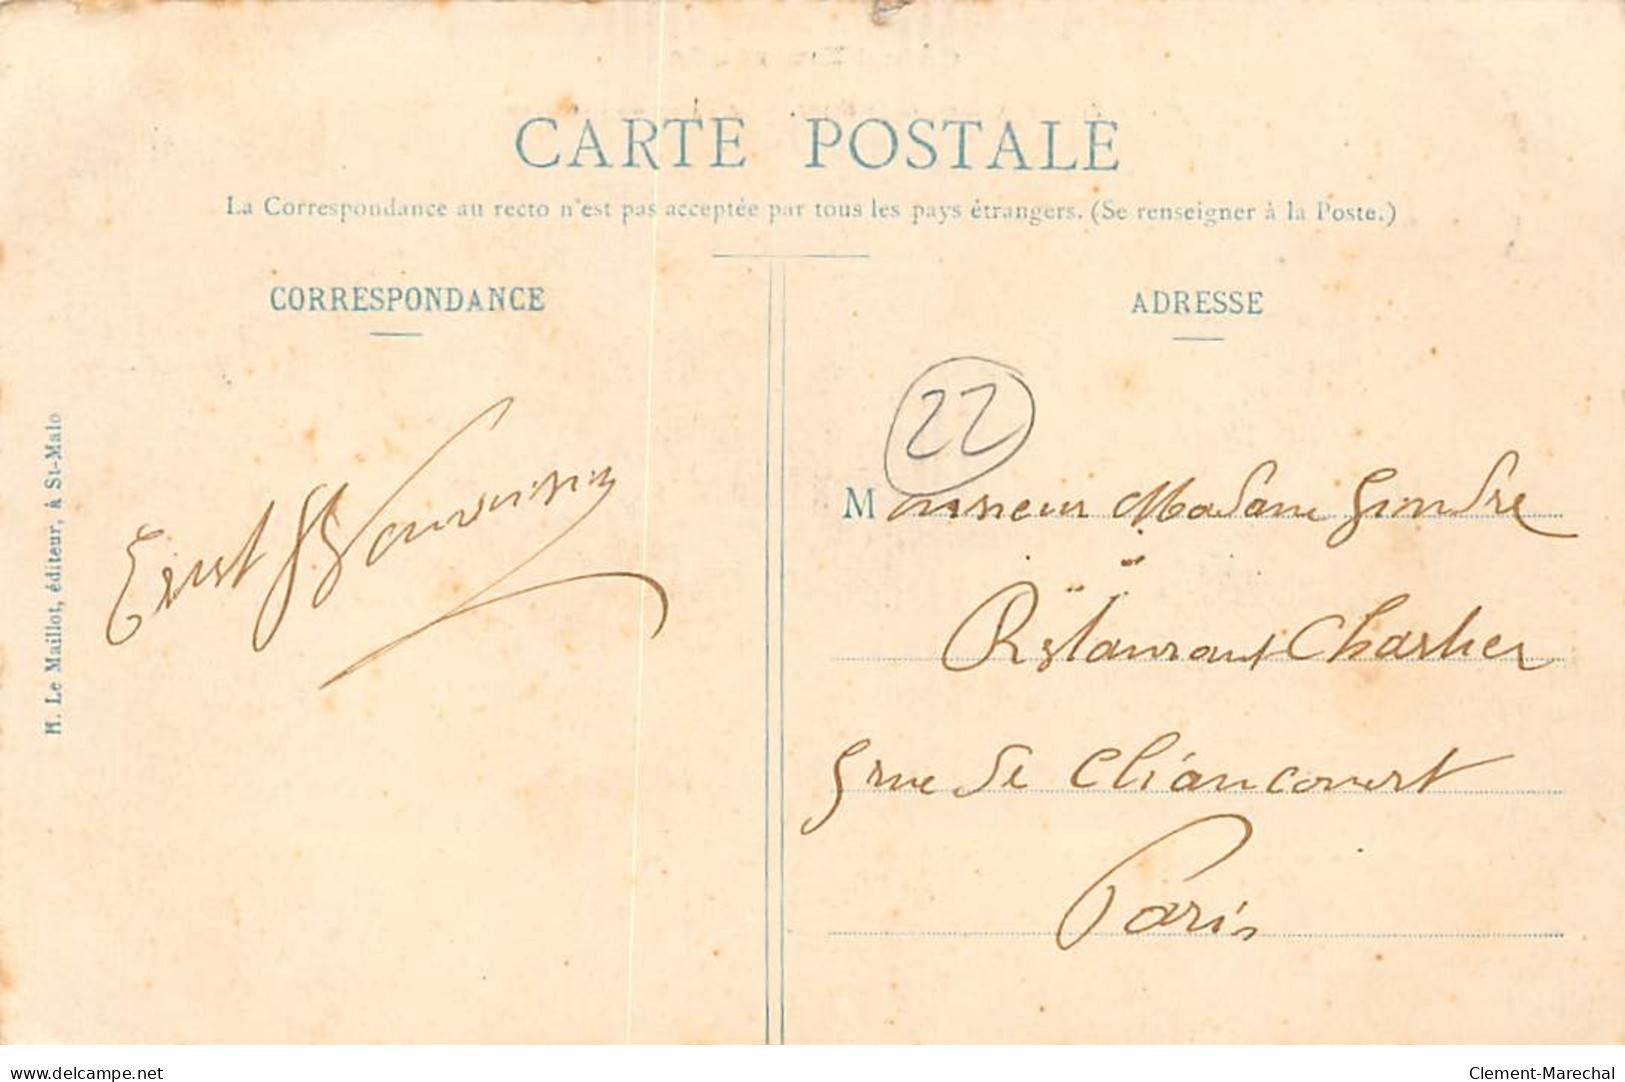 CARTE POSTALE
La Correspondance au recto n'est pas acceptée par tous les pays étrangers. (Se renseigner à la Poste.)
CORRESPONDANCE
ADRESSE
M. Le Maillot, éditeur, à St-Malo
22
Monsieur Madame Gondre
Restaurant Charlier
rue de Cliancourt
Paris
www.delcampe.net
Clement-Marechal